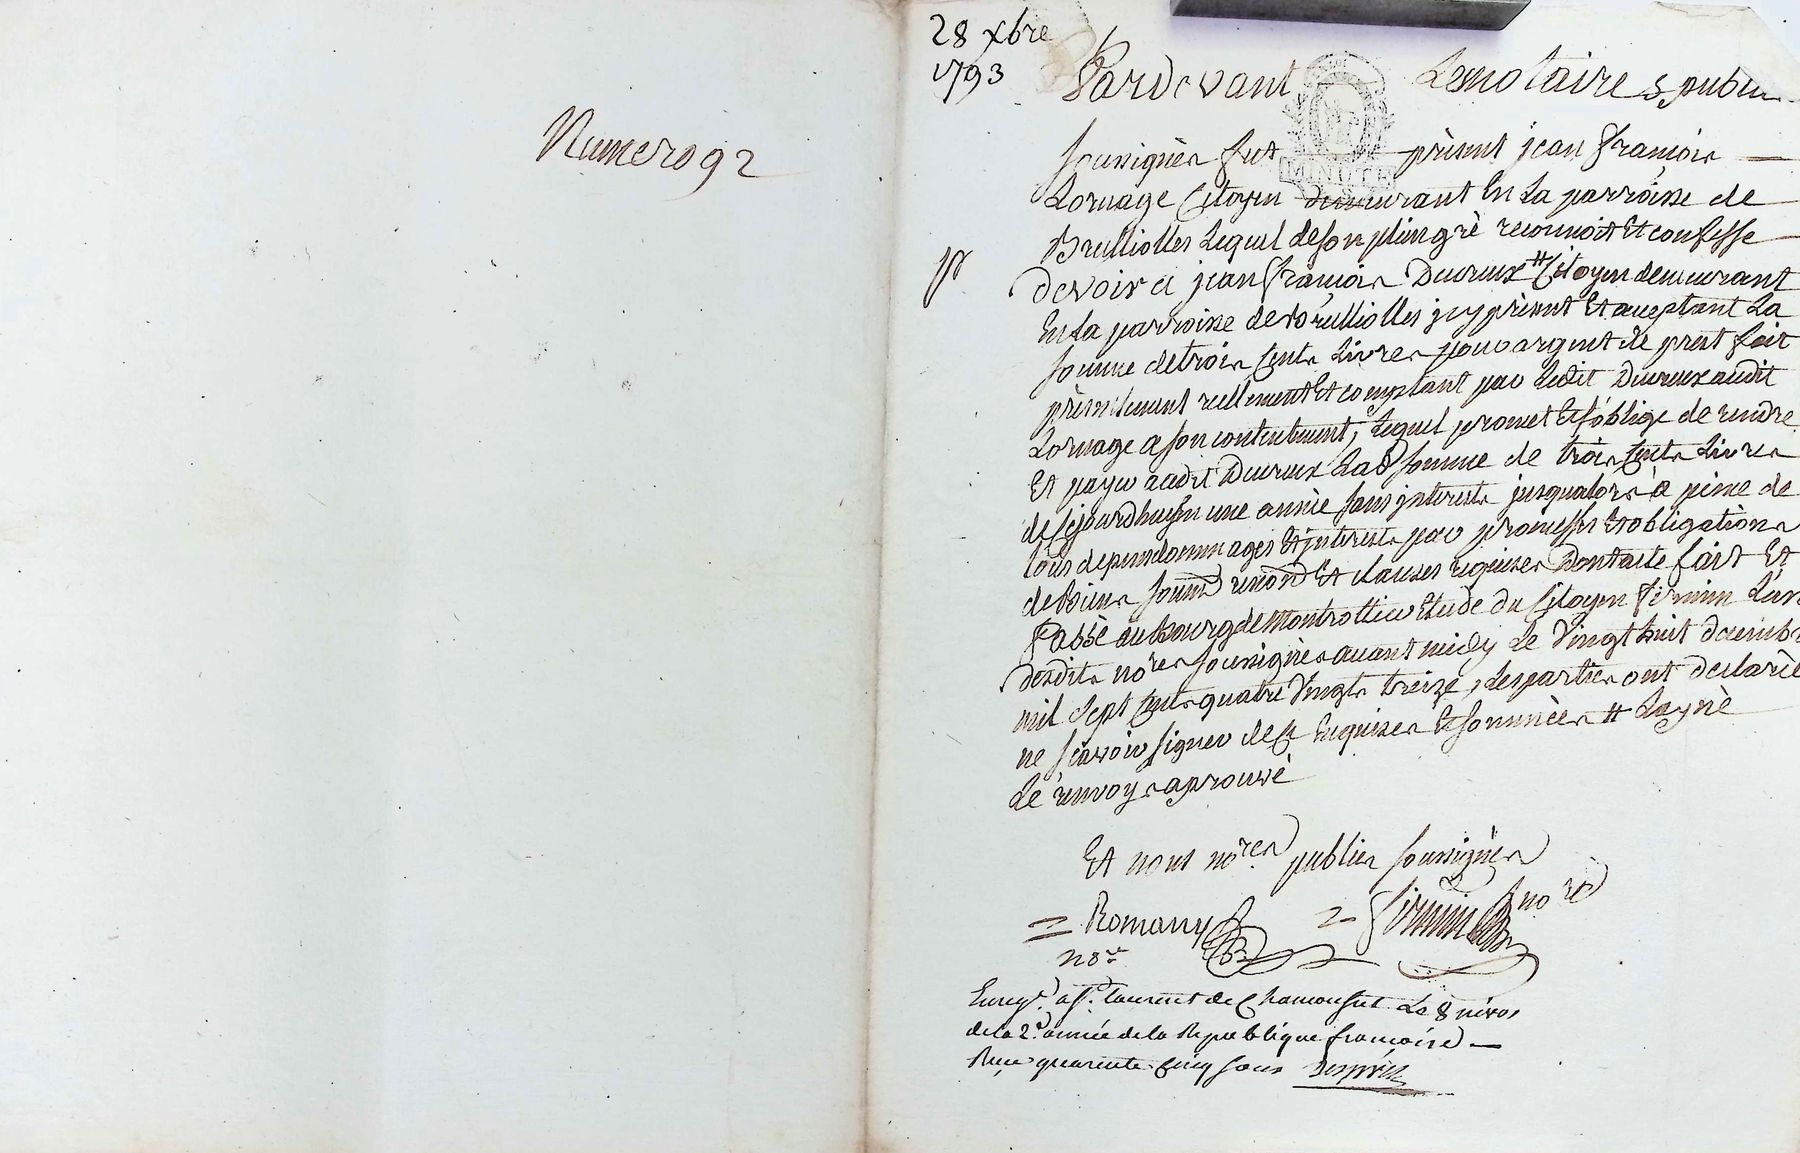 Numero 92
28 xbre
1793
Pardevant Les notaires publics
soussignés fut présent jean françois
Lornage Citoyen demeurant En La parroisse de
Brulliolles Lequel de son plein gré reconnoit Et confesse
devoir a jean françois Ducreux # Citoyen demeurant
En La parroisse de Brulliolles jcy présent Et acceptant La
somme de trois Cents Livres pour argent de prest fait
présentement réellement Et comptant par Ledit Ducreux audit
Lornage a son contentement, Lequel promet Et s'oblige de rendre
Et payer audit Ducreux Lad somme de trois Cents Livres
de ce jourdhuy En une année sans jnterests jusqualors a peine de
tous depens dommages Et jnterests par promesses Et obligations
de biens soum renon Et clauses requises Dont acte fait Et
Passé au Bourg de Montrottier Etude du Citoyen firmin L'un
desdits nores soussignés avant midy Le Vingt huit décembre
mil Sept Cents quatre Vingts treize, Les parties ont déclaré
ne sçavoir signer de ce Enquises Et sommées # Layné
Le renvoy aprouvé
Et nous nores publics soussignés
Romany
nore
firmin nore
MINUTE
Enregt. a St. Laurent de Chamousset Le 8 nivos
de la 2e. année de la Republique françoise
Reçu quarente Cinq sous